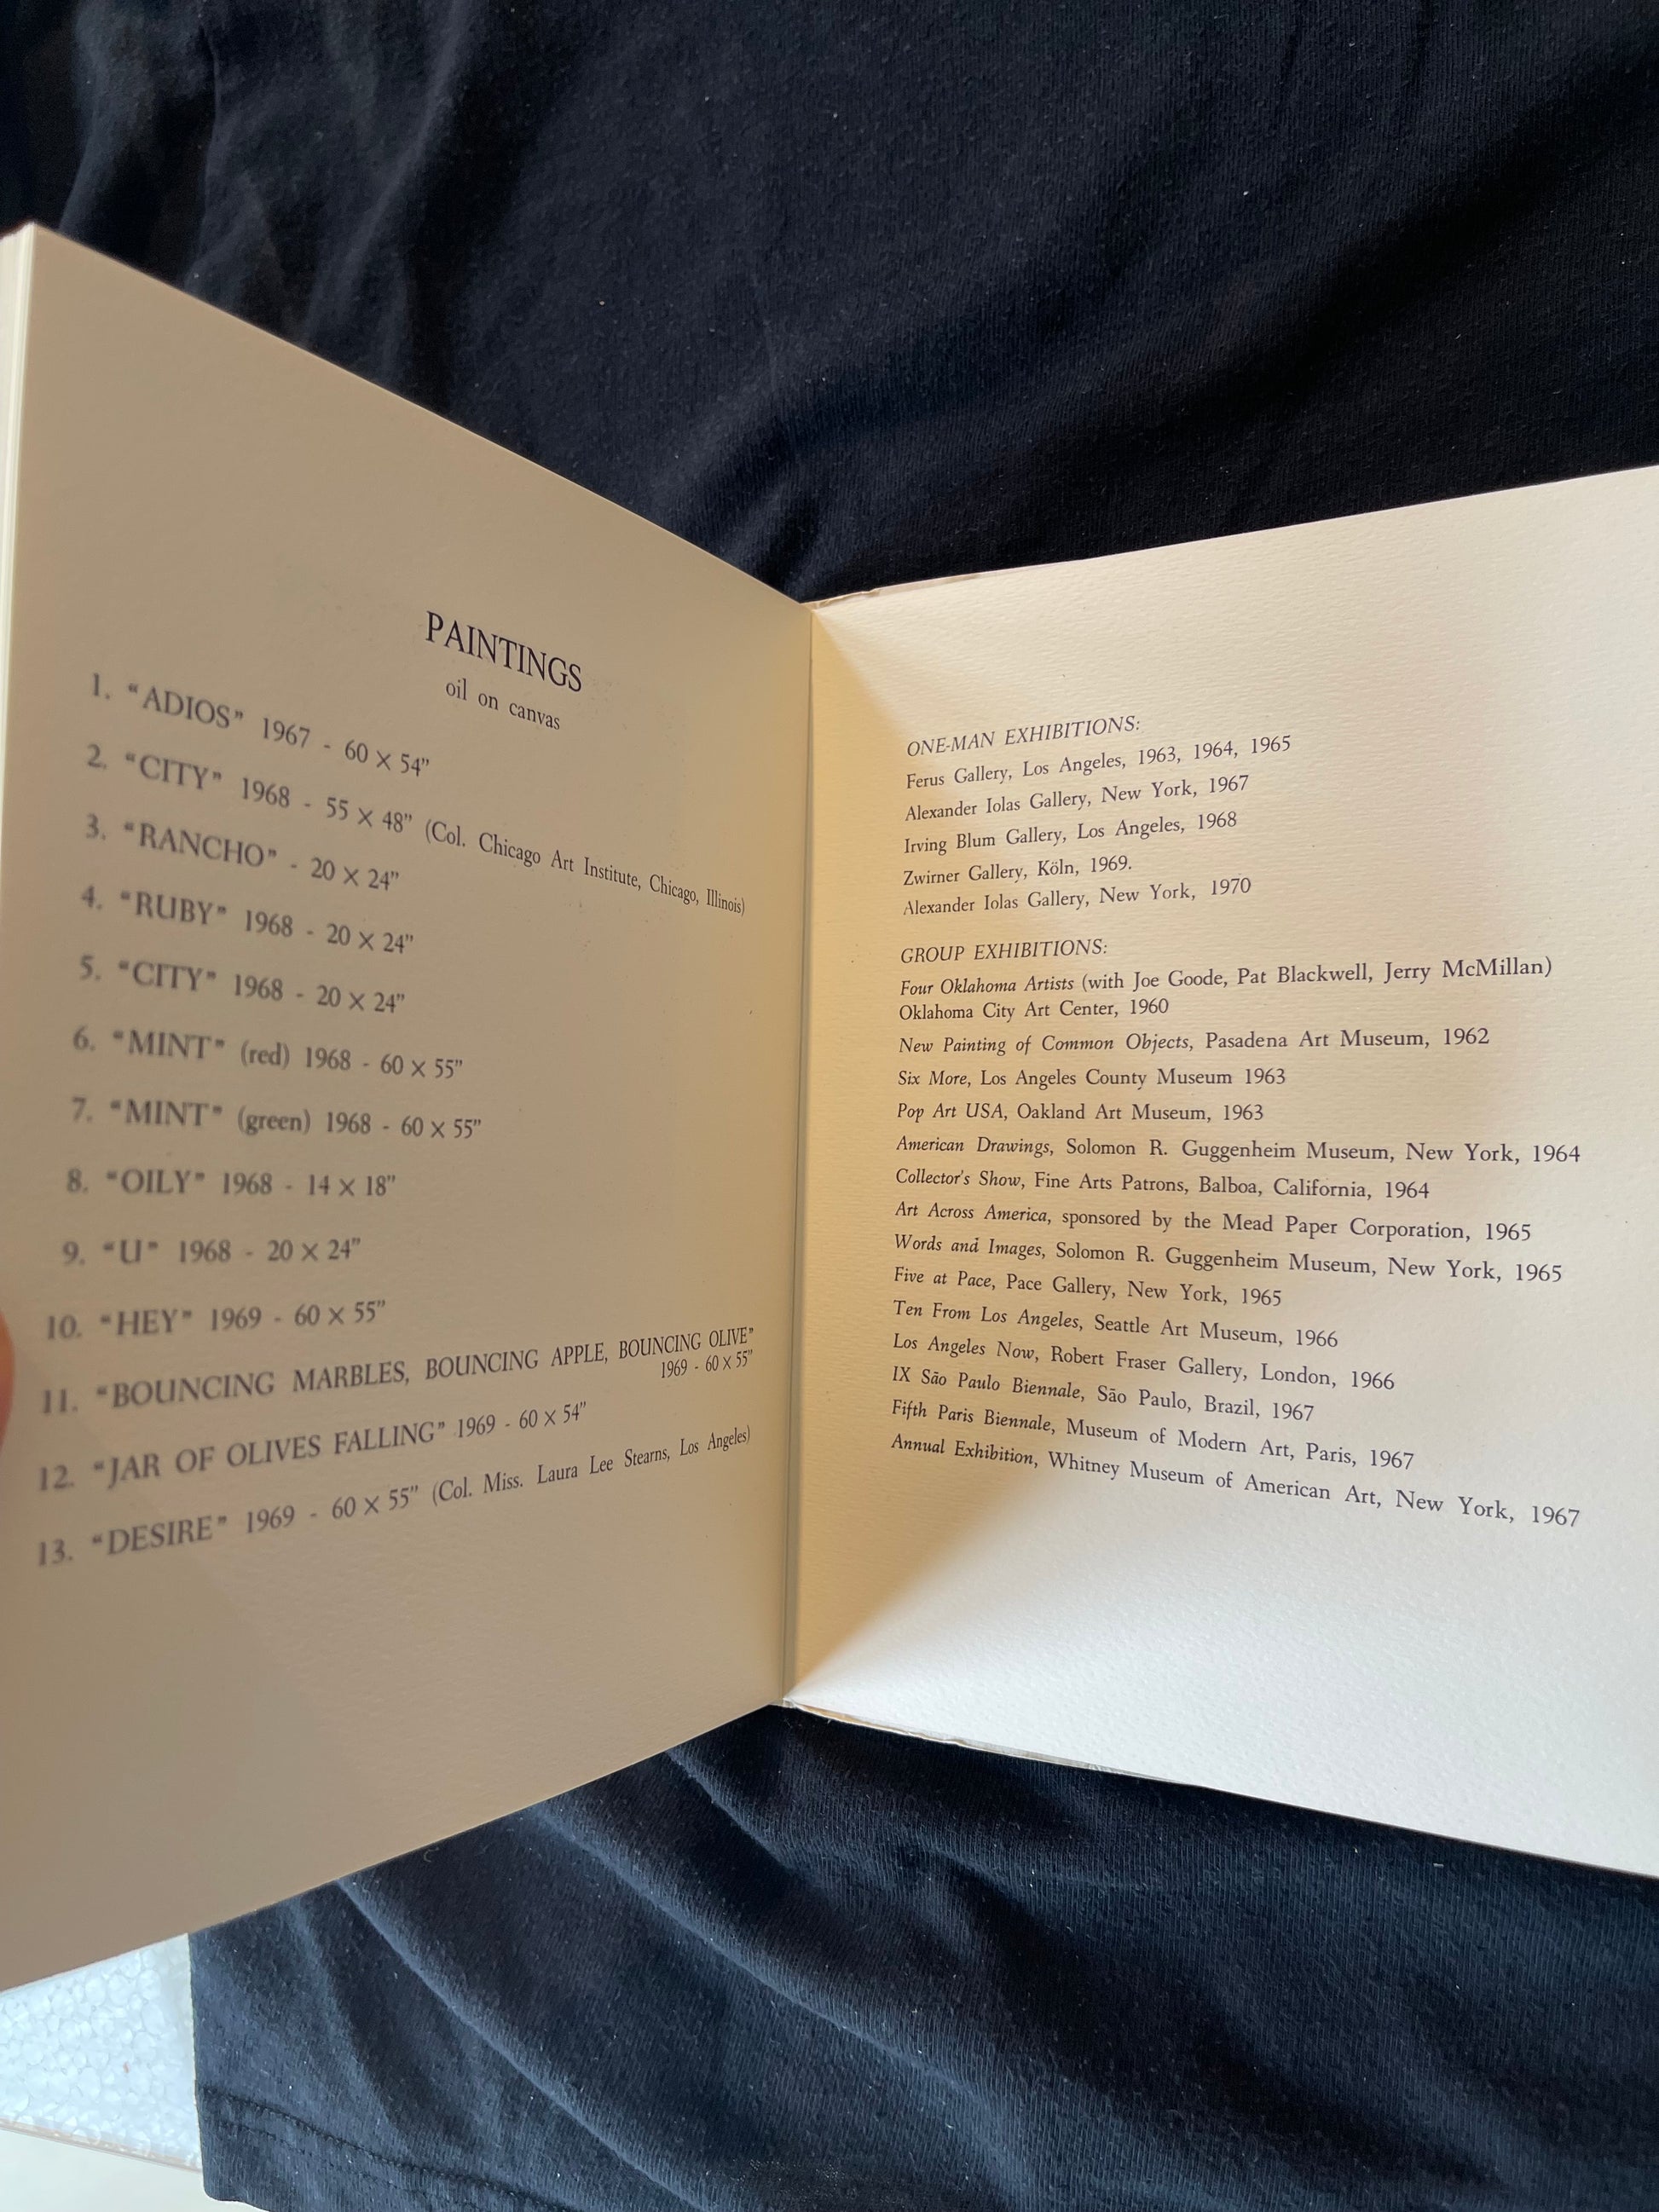 PAINTINGS
oil on canvas
1. “ADIOS” 1967 - 60 × 54”
2. “CITY” 1968 - 55 × 48” (Col. Chicago Art Institute, Chicago, Illinois)
3. “RANCHO” - 20 × 24”
4. “RUBY” 1968 - 20 × 24”
5. “CITY” 1968 - 20 × 24”
6. “MINT” (red) 1968 - 60 × 55”
7. “MINT” (green) 1968 - 60 × 55”
8. “OILY” 1968 - 14 × 18”
9. “U” 1968 - 20 × 24”
10. “HEY” 1969 - 60 × 55”
11. “BOUNCING MARBLES, BOUNCING APPLE, BOUNCING OLIVE”
1969 - 60 × 55”
12. “JAR OF OLIVES FALLING” 1969 - 60 × 54”
13. “DESIRE” 1969 - 60 × 55” (Col. Miss. Laura Lee Stearns, Los Angeles)
ONE-MAN EXHIBITIONS:
Ferus Gallery, Los Angeles, 1963, 1964, 1965
Alexander Iolas Gallery, New York, 1967
Irving Blum Gallery, Los Angeles, 1968
Zwirner Gallery, Köln, 1969.
Alexander Iolas Gallery, New York, 1970
GROUP EXHIBITIONS:
Four Oklahoma Artists (with Joe Goode, Pat Blackwell, Jerry McMillan)
Oklahoma City Art Center, 1960
New Painting of Common Objects, Pasadena Art Museum, 1962
Six More, Los Angeles County Museum 1963
Pop Art USA, Oakland Art Museum, 1963
American Drawings, Solomon R. Guggenheim Museum, New York, 1964
Collector's Show, Fine Arts Patrons, Balboa, California, 1964
Art Across America, sponsored by the Mead Paper Corporation, 1965
Words and Images, Solomon R. Guggenheim Museum, New York, 1965
Five at Pace, Pace Gallery, New York, 1965
Ten From Los Angeles, Seattle Art Museum, 1966
Los Angeles Now, Robert Fraser Gallery, London, 1966
IX São Paulo Biennale, São Paulo, Brazil, 1967
Fifth Paris Biennale, Museum of Modern Art, Paris, 1967
Annual Exhibition, Whitney Museum of American Art, New York, 1967